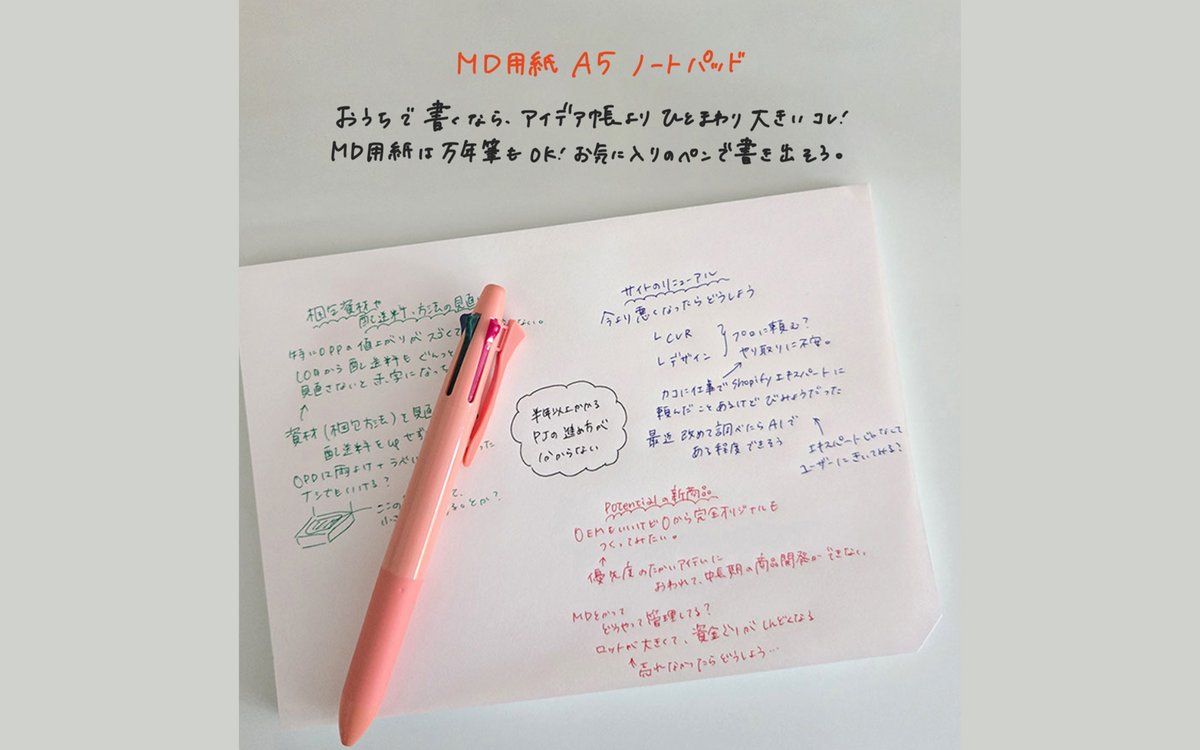 MD用紙 A5 ノートパッド
おうちで書くなら、アイデア帳よりひとまわり大きいコレ!
MD用紙は万年筆もOK! お気に入りのペンで書き出そう。
梱包資材や
配送料、方法の見直
ない。
特にOPPの値上がりがスゴくて
10月から配送料もぐんっと
見直さないと赤字になっち
↑
資材(梱包方法)を見直
配送料をupせず
った
OPPに雨よけ+ラベ
ナシでもいける?
ここの
て、
小さ
とか?
半年以上かかる
PJの進め方が
分からない
サイトのリニューアル
今より悪くなったらどうしよう
└ CVR
└ デザイン
プロに頼む?
やり取りに不安。
カコに仕事でShopifyエキスパートに
頼んだことあるけどびみょうだった
最近 改めて調べたらAIで
ある程度できそう
エキスパートじゃなくて
ユーザーにきいてみる?
Potentialの新商品
OEMもいいけど0から完全オリジナルも
つくってみたい。
↑
優先度のたかいアイテムに
おわれて、中長期の商品開発ができない。
MDとかって
どうやって管理してる?
ロットが大きくて、資金ぐりがしんどくなる
↑売れなかったらどうしよう…